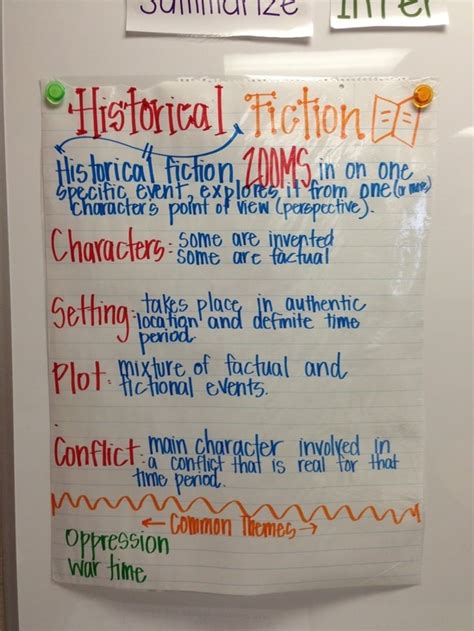 Summarize Infer
Historical Fiction
Historical fiction, ZOOMS in on one
specific event, explores it from one (or more)
character's point of view (perspective).
Characters: some are invented
some are factual
Setting: takes place in authentic
location and definite time
period
Plot: mixture of factual and
fictional events.
Conflict: main character involved in
a conflict that is real for that
time period.
← Common Themes →
Oppression
War time